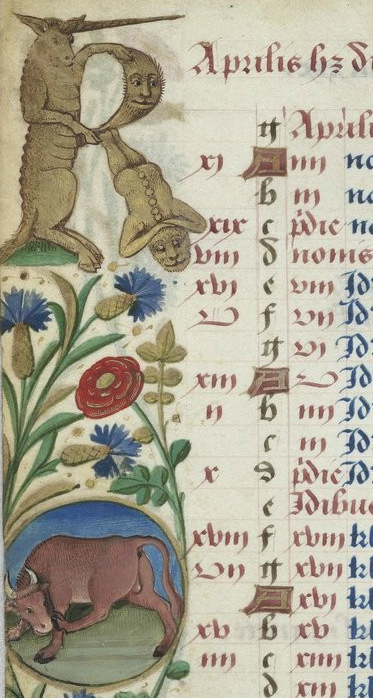 Aprilis hz di
g Aprili
xi A iiii no
b iii no
xix c pdie no
viii d nonis
xvi e viii Id
v f vii Id
g vi Id
xiii A v Id
ii b iiii Id
c iii Id
x d pdie Id
e Idibus
xviii f xviii kl
vii g xvii kl
A xvi kl
xv b xv kl
iiii c xiiii kl
d xiii kl